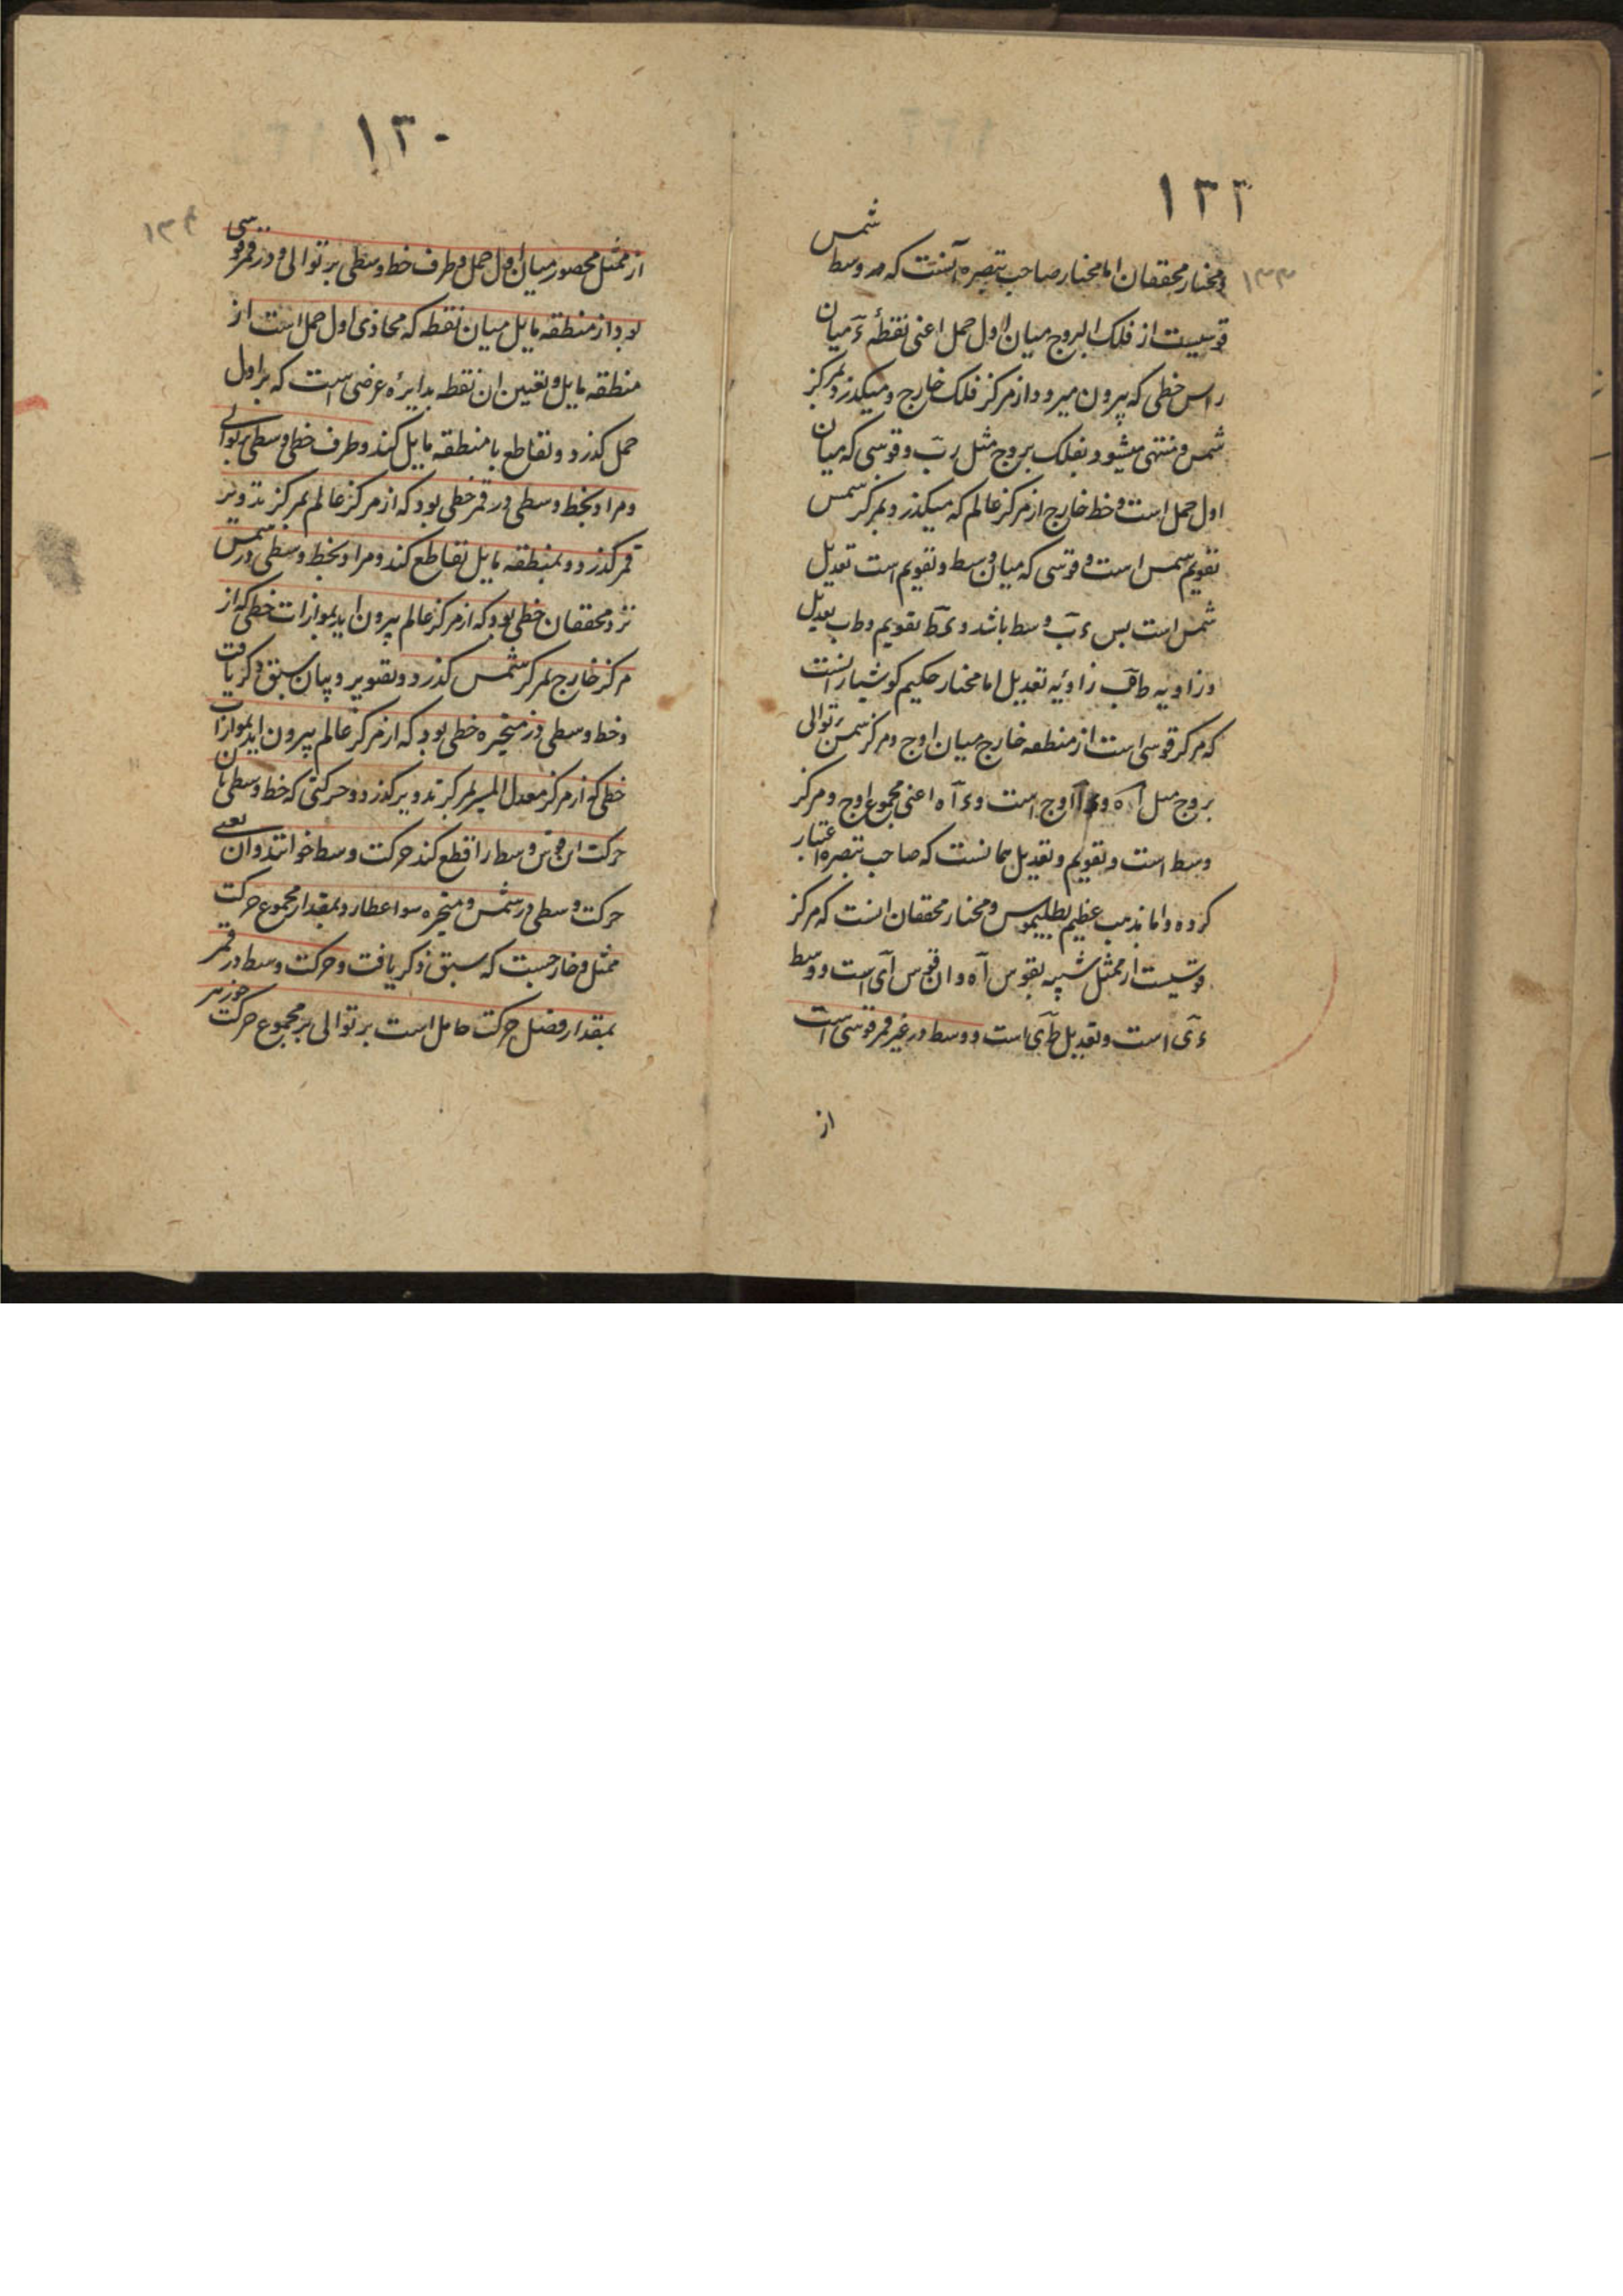 ۱۳۳
۱۳۳
و مختار محققان اما مختار صاحب تبصره آنست که وسط شمس
قوسیست از فلک البروج میان اول حمل اعنی نقطهٔ ءَ میان
راس خطی که بیرون میرود از مرکز فلک خارج و میگذرد بمرکز
شمس و منتهی میشود بفلک بروج مثل رب و قوسی که میان
اول حمل است و خط خارج از مرکز عالم که میگذرد بمرکز شمس
تقویم شمس است و قوسی که میان وسط و تقویم است تعدیل
شمس است بس ءب وسط باشد و ءط تقویم و طب تعدیل
و زاویه طاقب زاویه تعدیل اما مختار حکیم کوشیار انست
که مرکز قوسی است از منطقه خارج میان اوج و مرکز شمس بر توالی
بروج مثل اه و ءا اوج است و ءاه اعنی مجموع اوج و مرکز
وسط است و تقویم و تعدیل همانست که صاحب تبصره اعتبار
کرده و اما مذهب عظیم بطلیموس و مختار محققان انست که مرکز
قوسیست از ممثل شبیه بقوس اه و ان قوس ای است و وسط
ءی است و تعدیل طی است و وسط در غیر قمر قوسی است
از
۱۳۰
۱۳۴
از ممثل محصور میان اول حمل و طرف خط وسطی بر توالی و در قمر قوسی
بود از منطقه مایل میان نقطه که محاذی اول حمل است از
منطقه مایل و تعیین ان نقطه بدایرهٔ عرضی است که بر اول
حمل گذرد و تقاطع با منطقه مایل کند و طرف خط وسطی بر توالی
و مراد بخط وسطی در قمر خطی بود که از مرکز عالم بمرکز تدویر
قمر گذرد و بمنطقه مایل تقاطع کند و مراد بخط وسطی در شمس
نزد محققان خطی بود که از مرکز عالم بیرون اید بموازات خطی که از
مرکز خارج بمرکز شمس گذرد و تصویر و بیان سبق ذکر یافت
و خط وسطی در متحیره خطی بود که از مرکز عالم بیرون اید بموازات
خطی که از مرکز معدل المسیر بمرکز تدویر گذرد و حرکتی که خط وسطی بان
حرکت ان قوس وسط را قطع کند حرکت وسط خوانند و ان یعنی
حرکت وسطی در شمس و متحیره سوا عطارد بمقدار مجموع حرکت
ممثل و خارجست که سبق ذکر یافت و حرکت وسط در قمر
بمقدار فضل حرکت حامل است بر توالی بر مجموع حرکت جوزهر